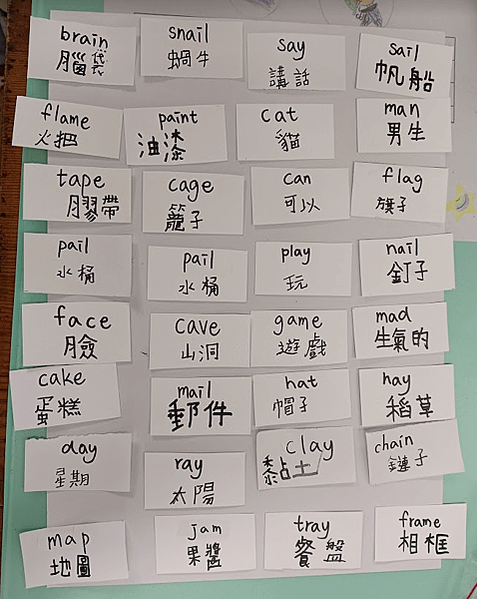 brain
腦袋
snail
蝸牛
say
講話
sail
帆船
flame
火把
paint
油漆
cat
貓
man
男生
tape
膠帶
cage
籠子
can
可以
flag
旗子
pail
水桶
pail
水桶
play
玩
nail
釘子
face
臉
cave
山洞
game
遊戲
mad
生氣的
cake
蛋糕
mail
郵件
hat
帽子
hay
稻草
day
星期
ray
太陽
clay
黏土
chain
鏈子
map
地圖
jam
果醬
tray
餐盤
frame
相框